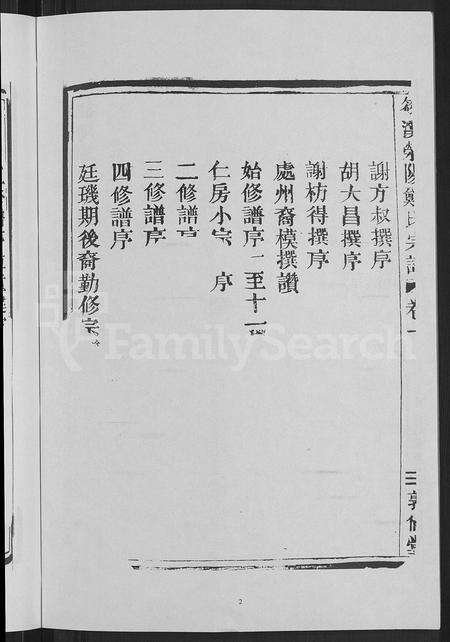 滎陽鄭氏宗譜 卷一 三 敦倫堂
謝方叔撰序
胡大昌撰序
謝枋得撰序
處州裔模撰讚
始修譜序一至十一
仁房小宗 序
二修譜序
三修譜序
四修譜序
廷璣期後裔勤修宗
FamilySearch
2